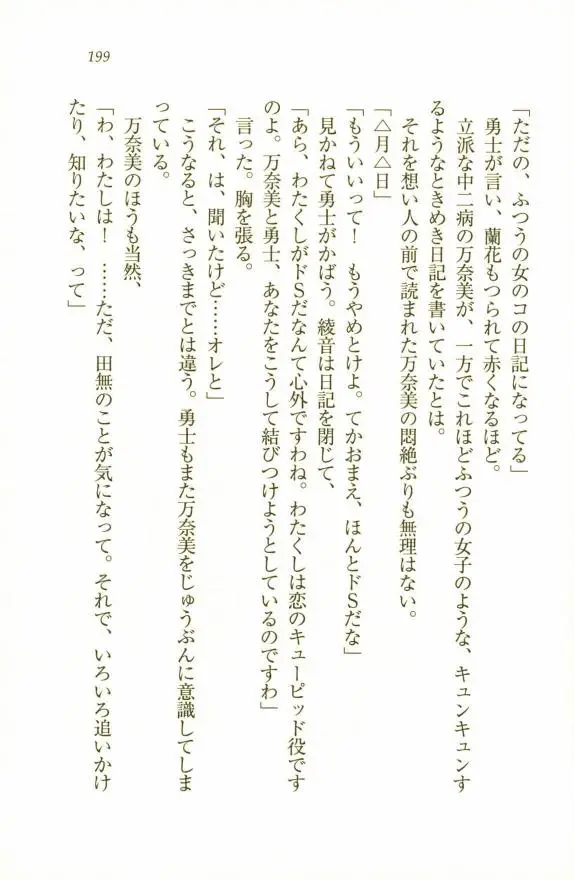 199
「ただの、ふつうの女のコの日記になってる」
勇士が言い、蘭花もつられて赤くなるほど。
立派な中二病の万奈美が、一方でこれほどふつうの女子のような、キュンキュンす
るようなときめき日記を書いていたとは。
それを想い人の前で読まれた万奈美の悶絶ぶりも無理はない。
「△月△日」
「もういいって!　もうやめとけよ。てかおまえ、ほんとドSだな」
見かねて勇士がかばう。綾音は日記を閉じて、
「あら、わたくしがドSだなんて心外ですわね。わたくしは恋のキューピッド役です
のよ。万奈美と勇士、あなたをこうして結びつけようとしているのですわ」
言った。胸を張る。
「それ、は、聞いたけど……オレと」
こうなると、さっきまでとは違う。勇士もまた万奈美をじゅうぶんに意識してしま
っている。
万奈美のほうも当然、
「わ、わたしは!　……ただ、田無のことが気になって。それで、いろいろ追いかけ
たり、知りたいな、って」